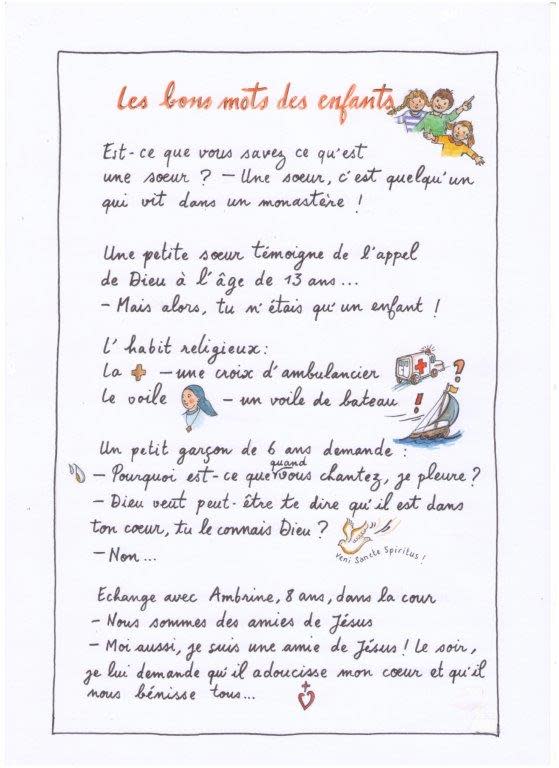 Les bons mots des enfants
Est-ce que vous savez ce qu'est
une soeur ? — Une soeur, c'est quelqu'un
qui vit dans un monastère !
Une petite soeur témoigne de l'appel
de Dieu à l'âge de 13 ans...
- Mais alors, tu n'étais qu'un enfant !
L'habit religieux :
La — une croix d'ambulancier
Le voile — un voile de bateau
Un petit garçon de 6 ans demande :
- Pourquoi est-ce que quand vous chantez, je pleure ?
- Dieu veut peut-être te dire qu'il est dans
ton coeur, tu le connais Dieu ?
- Non...
Veni Sancte Spiritus !
Echange avec Ambrine, 8 ans, dans la cour
- Nous sommes des amies de Jésus
- Moi aussi, je suis une amie de Jésus ! Le soir,
je lui demande qu'il adoucisse mon coeur et qu'il
nous bénisse tous...